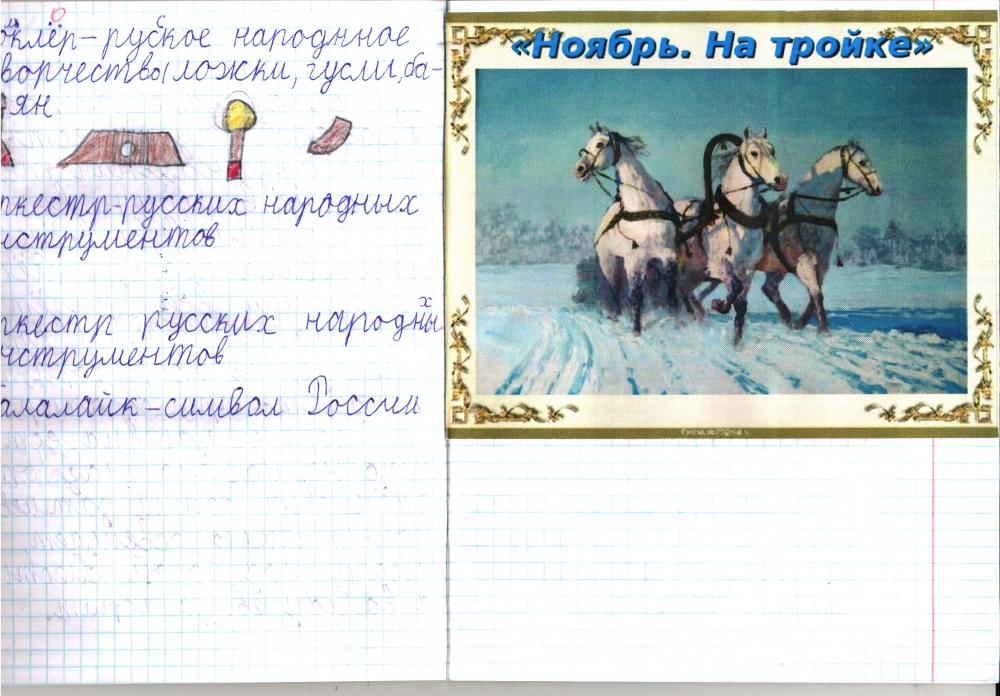 оклёр-руское народнное
ворчество(ложки, гусли, ба-
ян
ркестр-русских народных
нструментов
ркестр русских народных
нструментов
алалайк-символ России
«Ноябрь. На тройке»